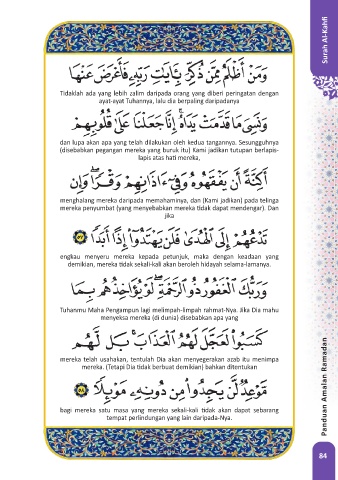 Surah Al-Kahfi
وَمَنْ أَظْلَمُ مِمَّن ذُكِّرَ بِـَٔايَـٰتِ رَبِّهِۦ فَأَعْرَضَ عَنْهَا
Tidaklah ada yang lebih zalim daripada orang yang diberi peringatan dengan
ayat-ayat Tuhannya, lalu dia berpaling daripadanya
وَنَسِىَ مَا قَدَّمَتْ يَدَاهُ ۚ إِنَّا جَعَلْنَا عَلَىٰ قُلُوبِهِمْ
dan lupa akan apa yang telah dilakukan oleh kedua tangannya. Sesungguhnya
(disebabkan pegangan mereka yang buruk itu) Kami jadikan tutupan berlapis-
lapis atas hati mereka,
أَكِنَّةً أَن يَفْقَهُوهُ وَفِىٓ ءَاذَانِهِمْ وَقْرًا ۖ وَإِن
menghalang mereka daripada memahaminya, dan (Kami jadikan) pada telinga
mereka penyumbat (yang menyebabkan mereka tidak dapat mendengar). Dan
jika
تَدْعُهُمْ إِلَى ٱلْهُدَىٰ فَلَن يَهْتَدُوٓا۟ إِذًا أَبَدًا ٥٧
engkau menyeru mereka kepada petunjuk, maka dengan keadaan yang
demikian, mereka tidak sekali-kali akan beroleh hidayah selama-lamanya.
وَرَبُّكَ ٱلْغَفُورُ ذُو ٱلرَّحْمَةِ ۖ لَوْ يُؤَاخِذُهُم بِمَا
Tuhanmu Maha Pengampun lagi melimpah-limpah rahmat-Nya. Jika Dia mahu
menyeksa mereka (di dunia) disebabkan apa yang
كَسَبُوا۟ لَعَجَّلَ لَهُمُ ٱلْعَذَابَ ۚ بَل لَّهُم
mereka telah usahakan, tentulah Dia akan menyegerakan azab itu menimpa
mereka. (Tetapi Dia tidak berbuat demikian) bahkan ditentukan
مَّوْعِدٌ لَّن يَجِدُوا۟ مِن دُونِهِۦ مَوْئِلًا ٥٨
bagi mereka satu masa yang mereka sekali-kali tidak akan dapat sebarang
tempat perlindungan yang lain daripada-Nya.
Panduan Amalan Ramadan
84